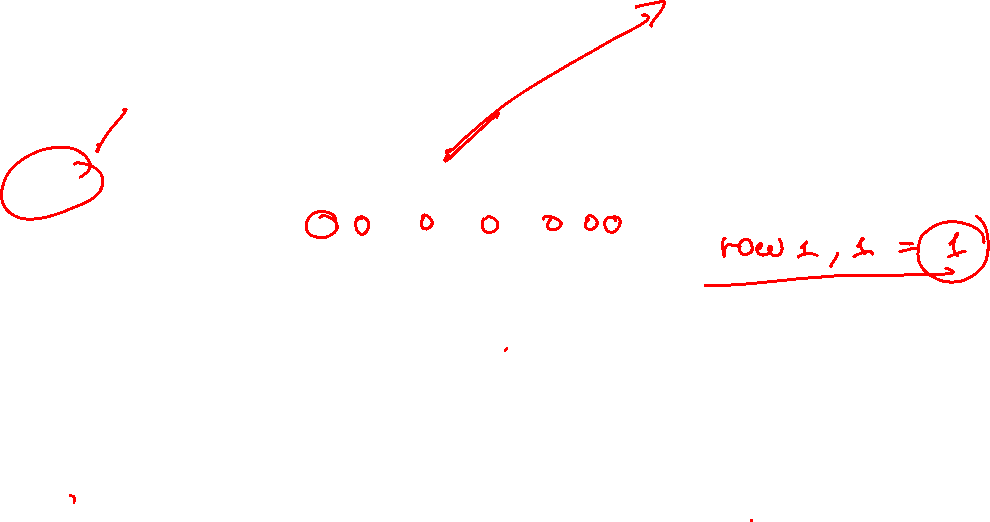 0 0 0 0 0 0 0
row 1, 1 = 1